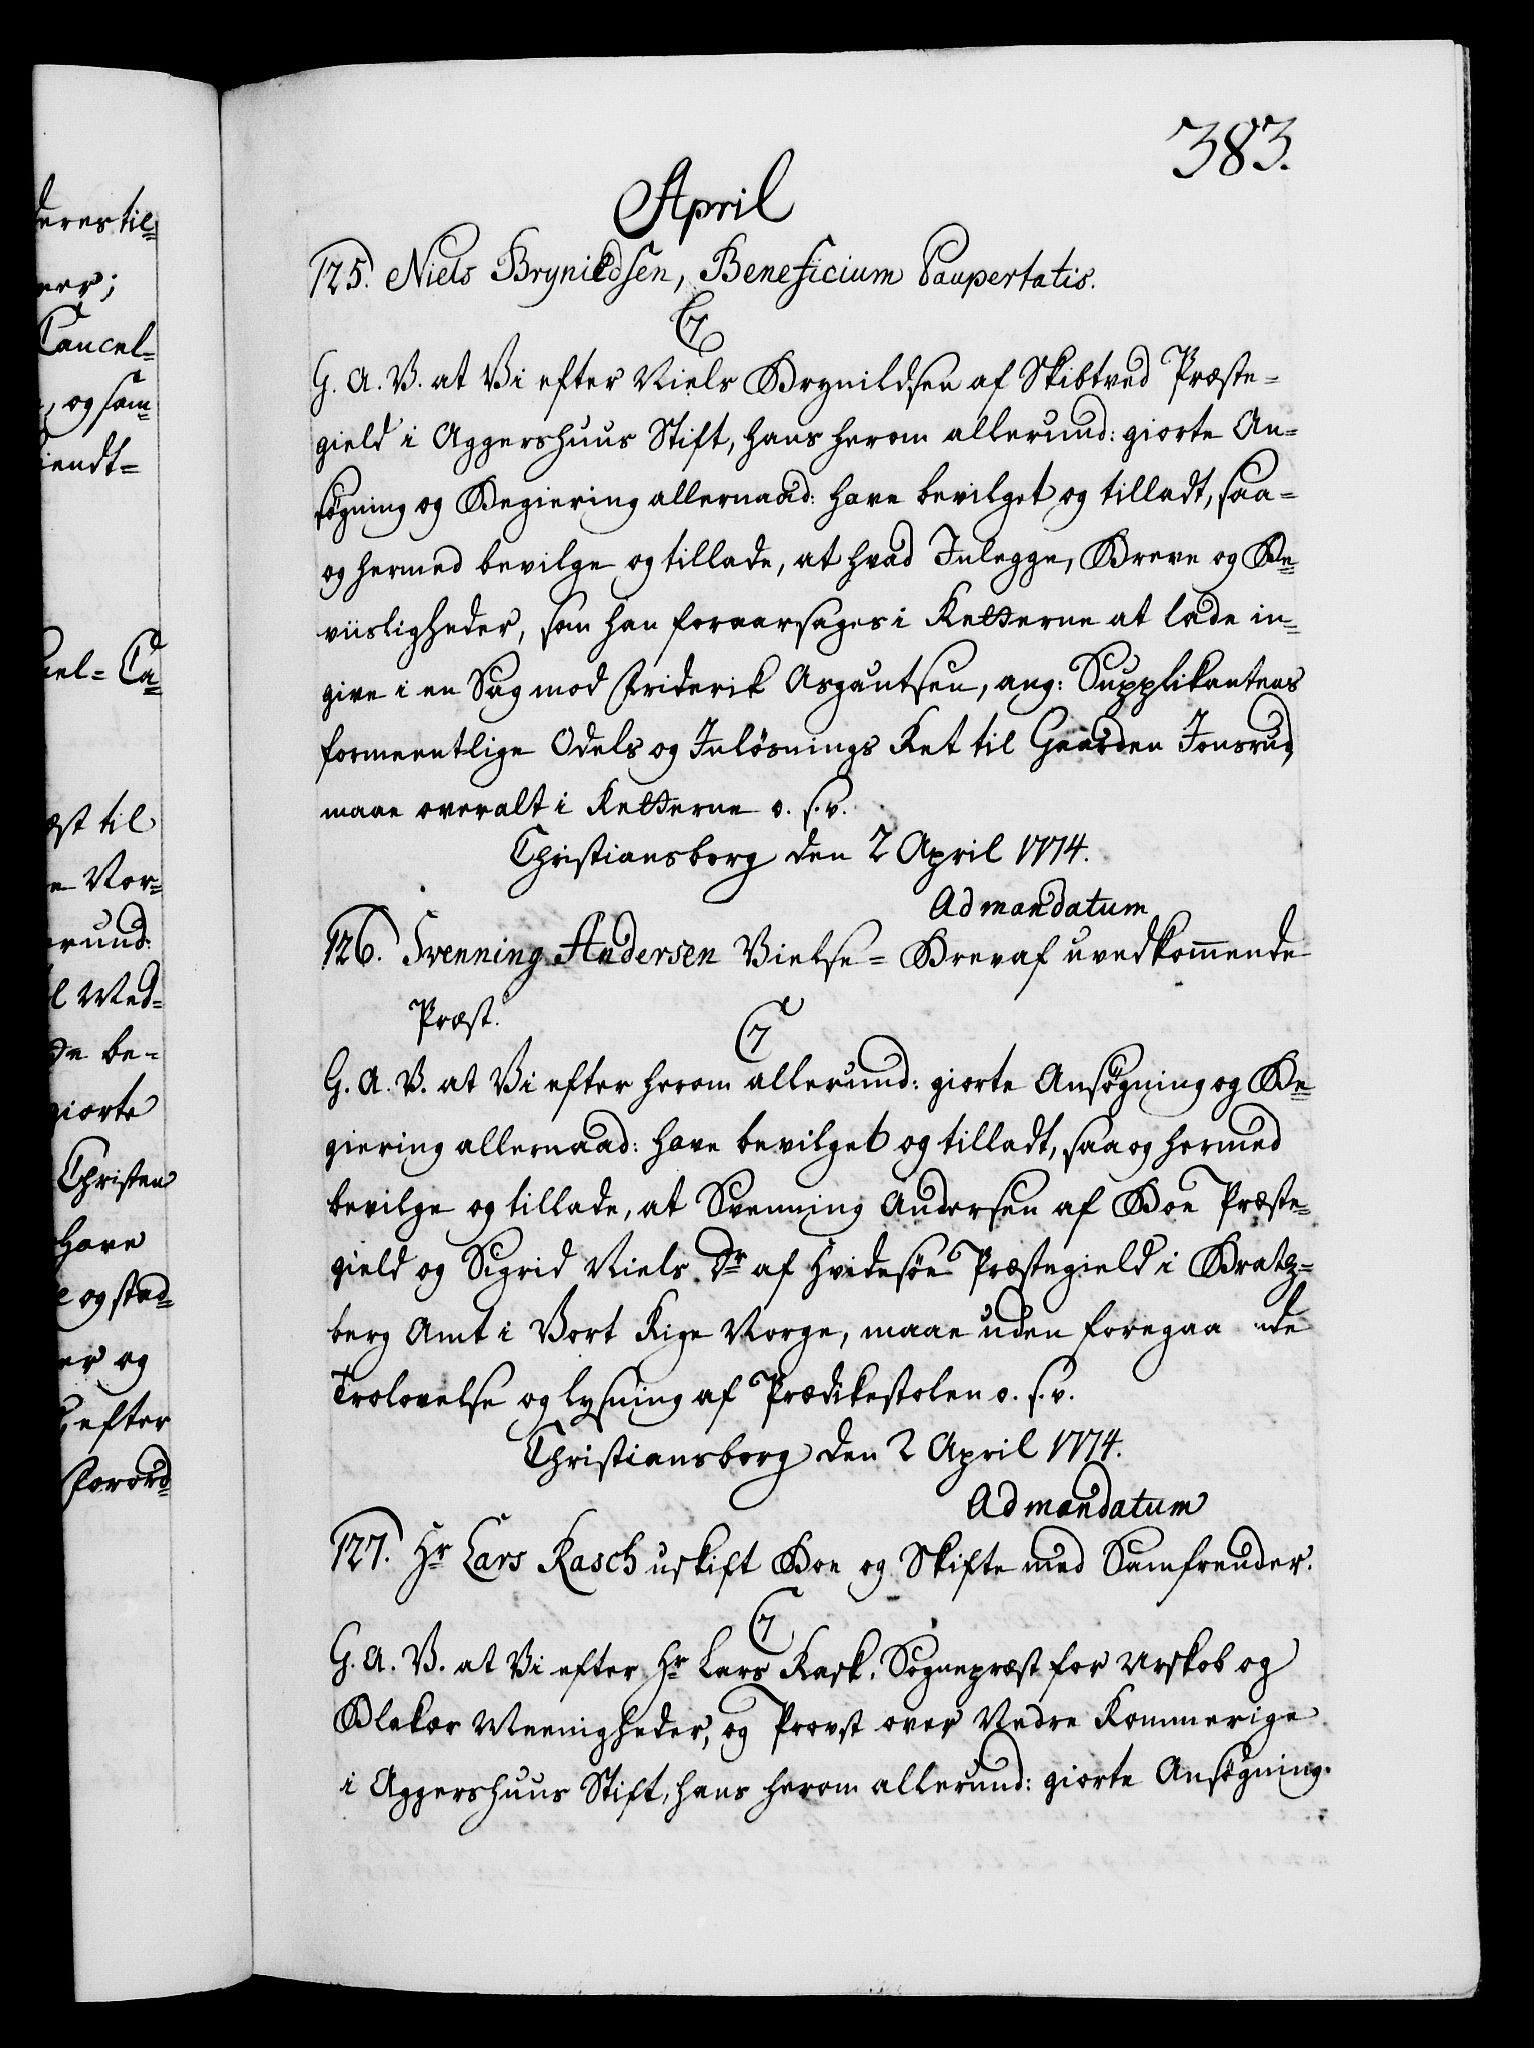 deres til=
rer;
Cancel-
, og sam=
iendt=
el= Ca=
æst til
e Vor=
rund:
l Med=
de be-
giorte
Christen
have
e og stad=
er og
efter
Forord=
383.
April
125. Niels Brynildsen, Beneficium Paupertatis.
C7
G. A. V. at Vi efter Niels Brynildsen af Skibtved Præste=
gield i Aggershuus Stift, hans herom allerund: giorte An=
søgning og Begiering allernaad: have bevilget og tilladt, saa=
og hermed bevilge og tillade, at hvad Inlegge, Breve og Be=
viisligheder, som han foraarsages i Retterne at lade in=
give i en Sag mod Friderik Asgautsen, ang: Supplikantens
formeentlige Odels og Inløsnings Ret til Gaarden Jonsrud,
maae overalt i Retterne o. s. v.
Christiansborg den 2 April 1774.
Ad mandatum
126. Svenning Andersen Vielse= Brev af uvedkom̄ende
Præst.
C7
G. A. V. at Vi efter herom allerund: giorte Ansøgning og Be=
giering allernaad: have bevilget og tilladt, saa og hermed
bevilge og tillade, at Svenning Andersen af Boe Præste=
gield og Sigrid Niels Dr af Hvidesøe Præstegield i Bratz=
berg Amt i Vort Rige Norge, maae uden foregaaende
Trolovelse og lysning af Prædikestolen o. s. v.
Christiansborg den 2 April 1774.
Ad mandatum
127. Hr Lars Rasch uskift Boe og Skifte med Samfrender.
C7
G. A. V. at Vi efter Hr Lars Rask, Sognepræst for Urskob og
Blakær Meenigheder, og Provst over Nedre Rommerige
i Aggershuus Stift, hans herom allerund: giorte Ansøgning.